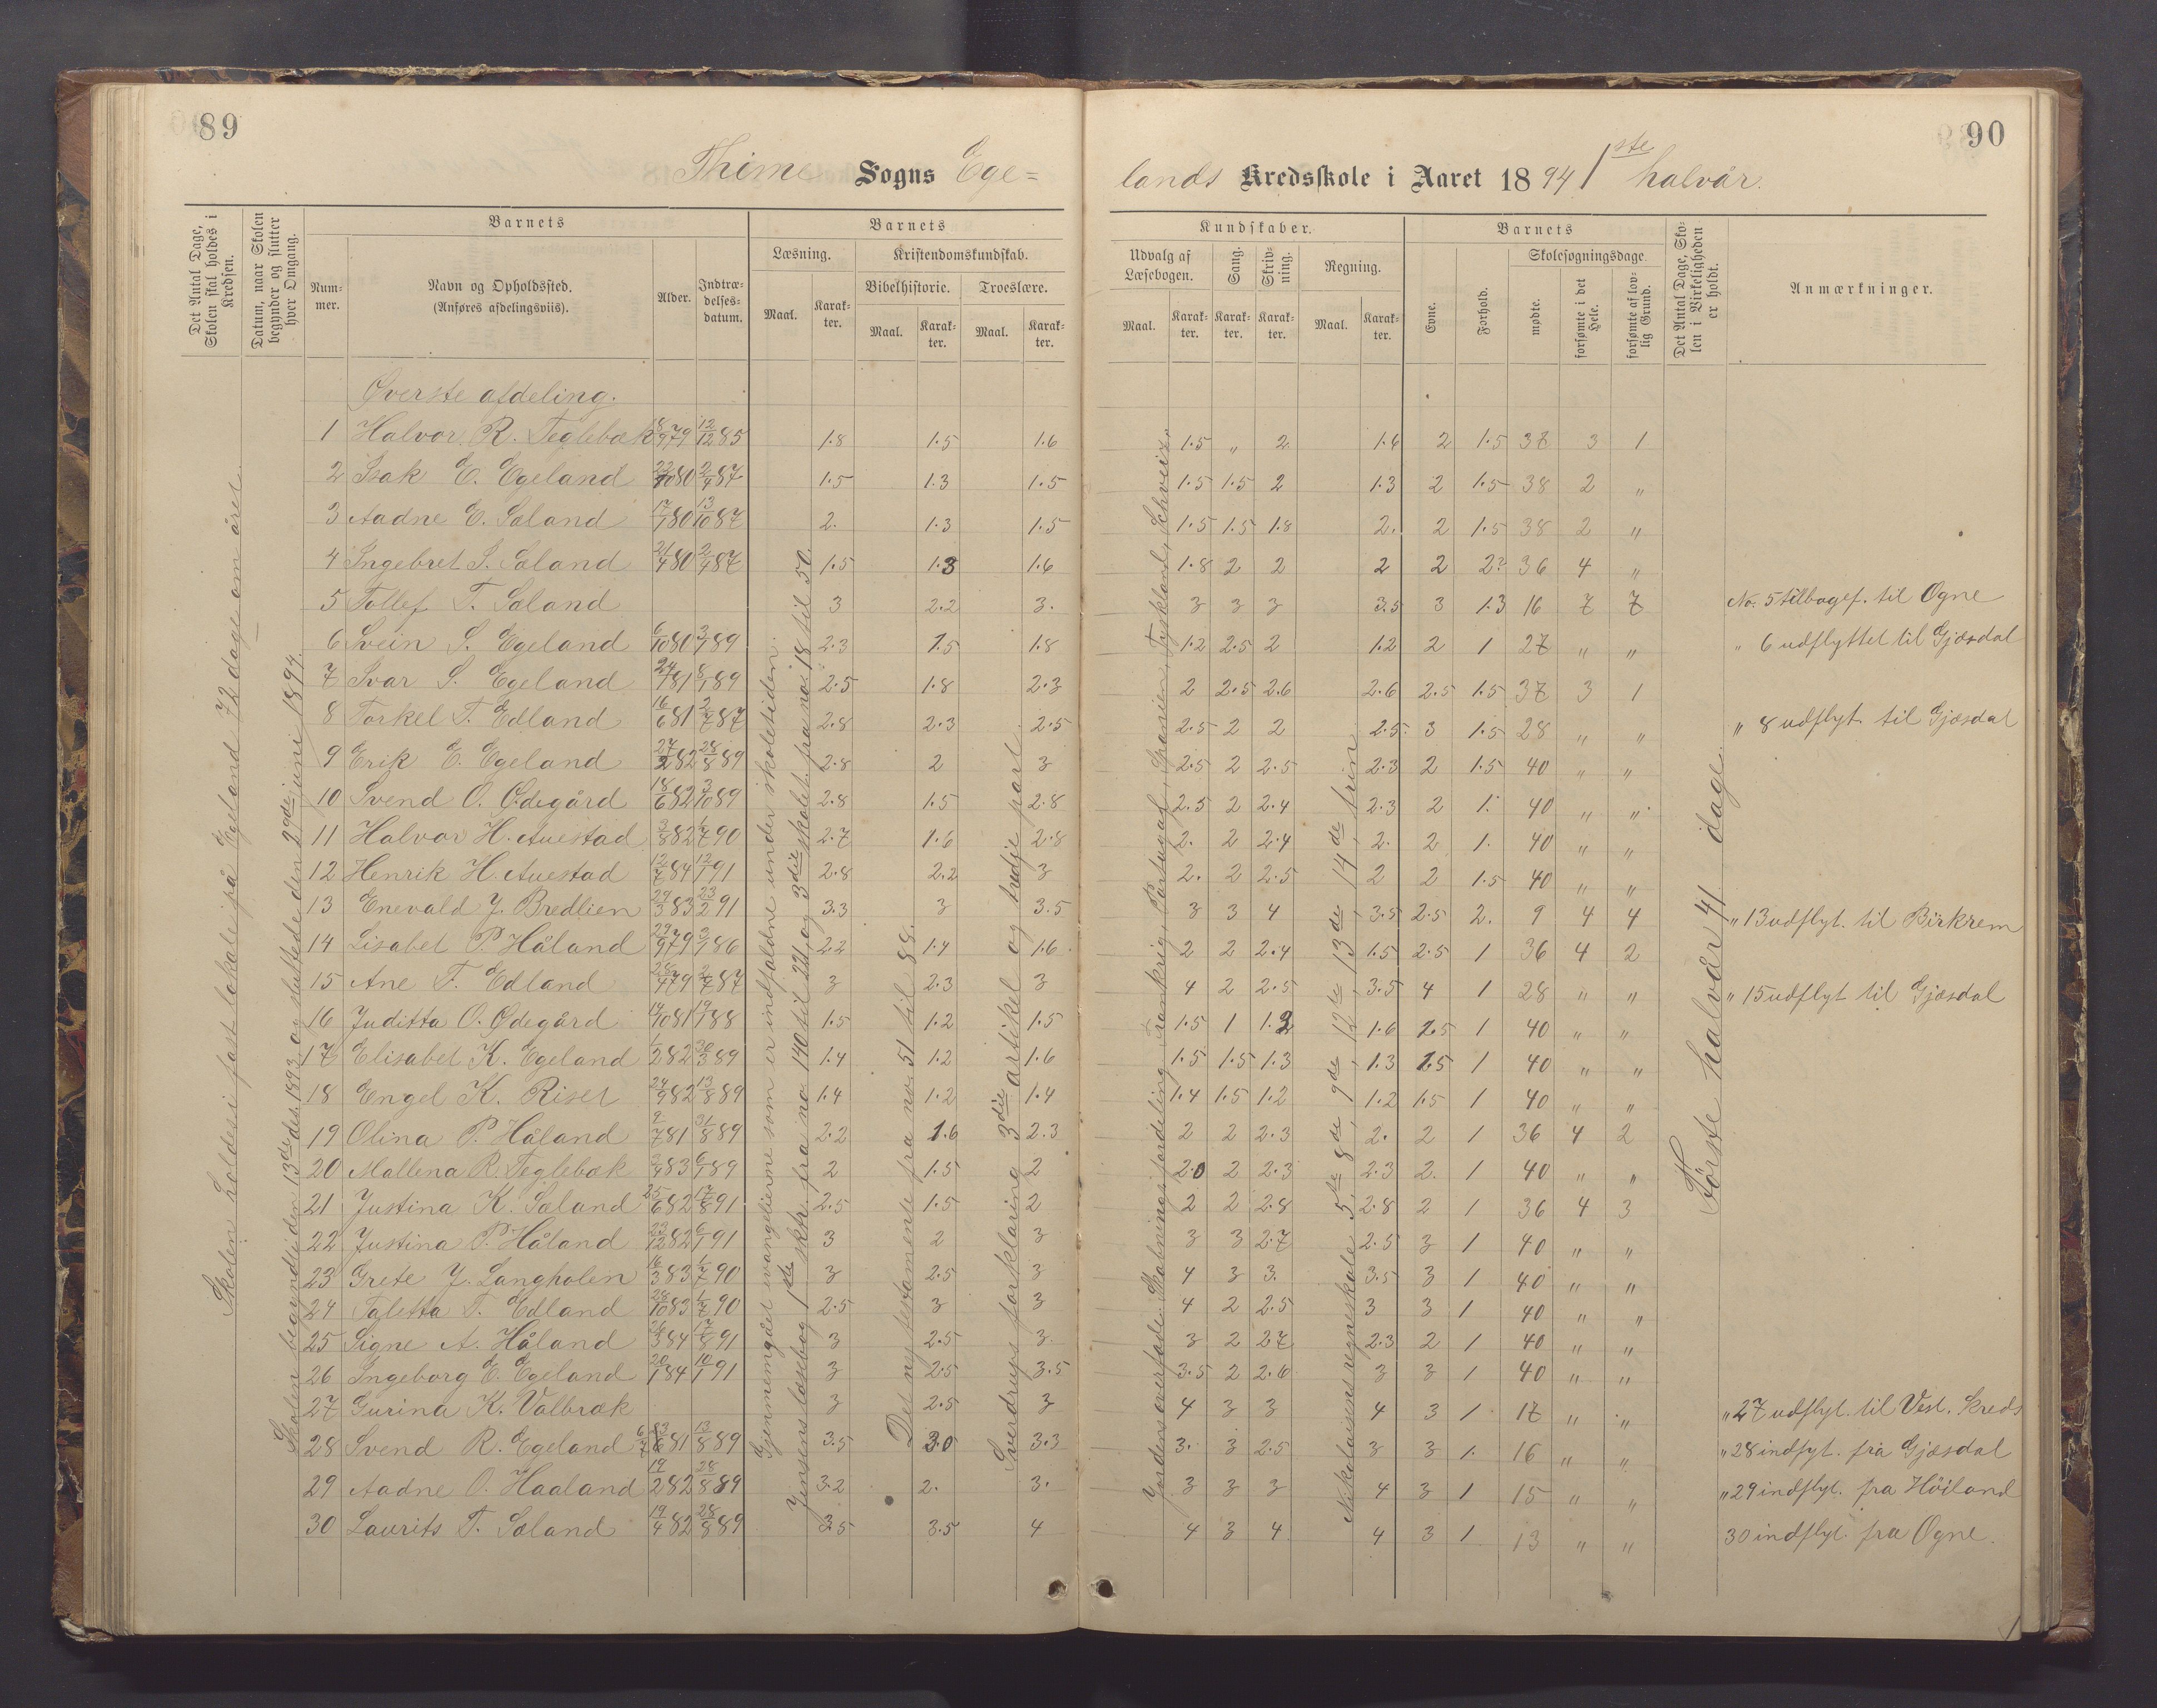 89
90
Thime Sogns Ege=
lands Kredsskole i Aaret 1894 1ste halvår.
Det Antal Dage, Skolen skal holdes i Kredsen.
Datum, naar Skolen begynder og slutter hver Omgang.
Barnets
Num-mer.
Navn og Opholdssted. (Anføres afdelingsviis).
Alder.
Indtræ-delses-datum.
Barnets
Læsning.
Maal.
Karak-ter.
Kristendomskundskab.
Bibelhistorie.
Maal.
Karak-ter.
Troeslære.
Maal.
Karak-ter.
Kundskaber.
Udvalg af Læsebogen.
Maal.
Karak-ter.
Sang.
Karak-ter.
Skriv-ning.
Karak-ter.
Regning.
Maal.
Karak-ter.
Barnets
Evne.
Forhold.
Skolesøgningsdage.
mødte.
forsømte i det Hele.
forsømte af lov-lig Grund.
Det Antal Dage, Sko-len i Virkeligheden er holdt.
Anmærkninger.
Skolen holdes i fast lokale på Egeland 72 dage om året.
Skolen begyndte den 13de des. 1893 og sluttede den 29de juni 1894.
Gjennemgået evangelierne som er indfaldne under skoletiden.
Jensens læsebog 1ste skktr. fra no 140 til 221, og 3die skolet. fra no 18 til 50.
Det ny testamente fra no 51 til 88.
Sverdrups forklaring 3die artikel og tredje part.
Jordens overflade. Skabningsfordeling. Frankrig, Portugal, Spanien, Tyskland, Schveiz.
Nikolaisens regneskole 5te, 8de, 9de, 12te, 13de, 14de trin.
Første halvår 41 dage.
Øverste afdeling.
1 Halvor R. Teglebæk 8/9 79 12/12 85 1.8 1.5 1.6 1.5 " 2 1.6 2 1.5 37 3 1
2 Isak E. Egeland 22/10 80 2/4 87 1.5 1.3 1.5 1.5 1.5 2 1.3 2 1.5 38 2 "
3 Aadne E. Sæland 17/1 80 13/10 87 2. 1.3 1.5 1.5 1.5 1.8 2. 2 1.5 38 2 "
4 Ingebret S. Sæland 21/4 80 2/4 87 1.5 1.3 1.6 1.8 2 2 2 2 2? 36 4 "
5 Tollef T. Sæland 3 2.2 3. 3 3 3 3.5 3 1.3 16 7 7 No. 5 tilbagef. til Ogne
6 Svein S. Egeland 6/10 80 3/1 89 2.3 1.5 1.8 1.2 2.5 2 1.2 2 1 27 " " " 6 udflyttet til Gjæsdal
7 Ivar S. Egeland 24/1 81 8/1 89 2.5 1.8 2.3 2 2.5 2.6 2.6 2.5 1.5 37 3 1
8 Torkel T. Edland 16/6 81 2/7 87 2.8 2.3 2.5 2.5 2 2 2.5 3 1.5 28 " " " 8 udflyt. til Gjæsdal
9 Erik E. Egeland 27/2 82 28/8 89 2.8 2 3 2.5 2 2.5 2.3 2 1.5 40 " "
10 Svend O. Ødegård 18/6 82 3/10 89 2.8 1.5 2.8 2.5 2 2.4 2.3 2 1. 40 " "
11 Halvor H. Auestad 3/8 82 1/7 90 2.7 1.6 2.8 2. 2 2.4 2. 2 1. 40 " "
12 Henrik H. Auestad 12/7 84 12/1 91 2.8 2.2 3 2. 2 2.5 2 2 1.5 40 " "
13 Enevald J. Bredlien 24/3 83 23/2 91 3.3 3 3.5 3 3 4 3.5 2.5 2. 9 4 4 " 13 udflyt. til Birkrem
14 Lisabet P. Håland 29/9 79 3/1 86 2.2 1.4 1.6 2 2 2.4 1.5 2.5 1 36 4 2
15 Ane T. Edland 28/4 79 2/7 87 3 2.3 3 4 2 2.5 3.5 4 1 28 " " " 15 udflyt til Gjæsdal
16 Juditta O. Ødegård 14/10 81 19/1 88 1.5 1.2 1.5 1.5 1 1.2 1.6 1.5 1 40 " "
17 Elisabet K. Egeland 1/2 82 30/3 89 1.4 1.2 1.6 1.5 1.5 1.3 1.3 1.5 1 40 " "
18 Engel K. Riset 24/9 82 13/8 89 1.4 1.2 1.4 1.4 1.5 1.2 1.2 1.5 1 40 " "
19 Olina P. Håland 2/7 81 31/8 89 2.2 1.6 2.3 2 2 2.3 2. 2 1 36 4 2
20 Mallena R. Teglebæk 2/4 83 6/1 89 2 1.5 2 2.0 2 2.3 2.3 2. 1 40 " "
21 Justina K. Sæland 25/6 82 17/8 91 2.5 1.5 2 2 2 2.8 2.8 2 1 36 4 3
22 Justina P. Håland 23/12 82 6/1 91 3 2 3 3 3 2.7 2.5 3 1 40 " "
23 Grete J. Langholen 16/3 83 1/7 90 3 2.5 3 4 3 3. 3.5 3 1 40 " "
24 Taletta T. Edland 28/10 83 1/7 90 2.5 3 3 4 2 2.5 3 3 1 40 " "
25 Signe A. Håland 26/3 84 17/8 91 3 2.5 3 3 2 2.7 2.3 2 1 40 " "
26 Ingeborg E. Egeland 20/1 84 10/1 91 3 2.5 3.5 3.5 2 2.6 3 3 1 40 " "
27 Gurina K. Valbræk 3 2.5 3 4 3 3 4 3 1 17 " " " 27 udflyt. til Vest. Kreds
28 Svend R. Egeland 81 13/8 89 3.5 3.0 3.3 3. 3 2.5 3 3 1. 16 " " " 28 indflyt. fra Gjæsdal
29 Aadne O. Haaland 19/2 82 28/8 89 3.2 2. 3. 3 3 3 4 3 1 15 " " " 29 indflyt. fra Höiland
30 Laurits T. Sæland 19/4 82 28/8 89 3.5 3.5 4 4 3 4 4 3 1 13 " " 30 indflyt. fra Ogne.